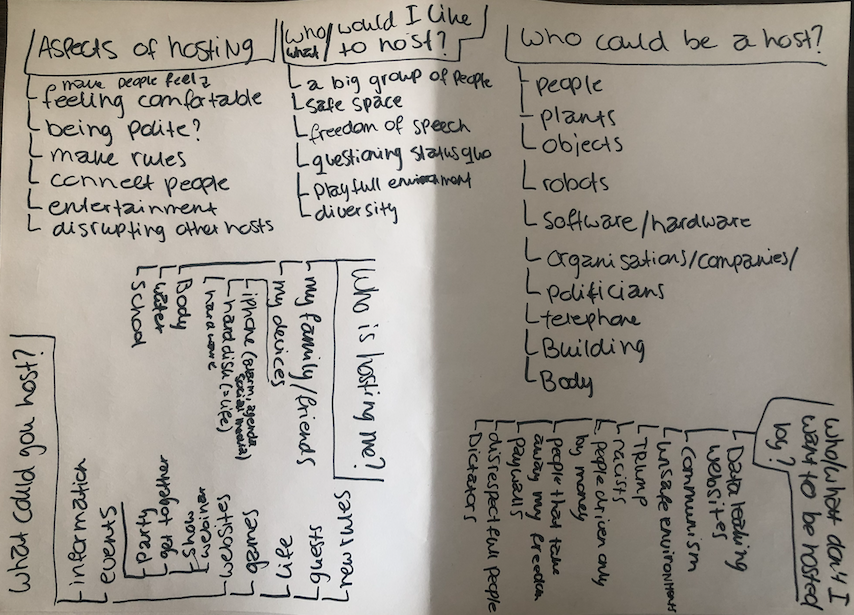 Aspects of hosting
make people feel?
feeling comfortable
being polite?
make rules
connect people
entertainment
disrupting other hosts
who/would I like
what/to host?
a big group of people
safe space
freedom of speech
questioning status quo
playfull environment
diversity
Who could be a host?
people
plants
objects
robots
software/hardware
organisations/companies/
politicians
telephone
Building
Body
Who is hosting me?
my family/friends
my devices
iphone (alarm, agenda
social media)
hard disk (=life)
hardware
Body
water
school
Who/what don't I
want to be hosted
by?
Data leaking
websites
communism
unsafe environments
Trump
racists
people driven only
by money
people that take
away my freedom
paywalls
disrespectfull people
Dictators
What could you host?
information
events
party
get together
show
webinar
websites
games
life
guests
new rules